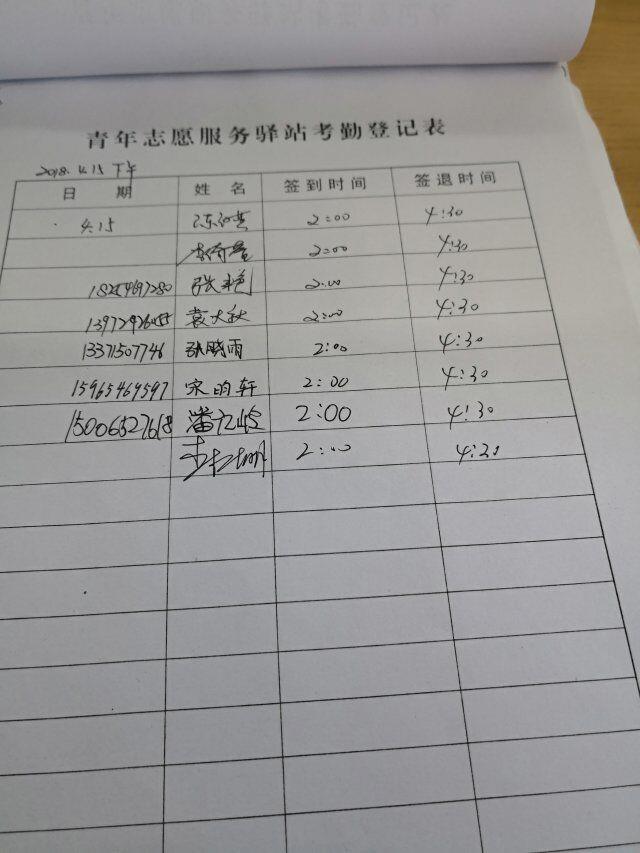 青年志愿服务驿站考勤登记表
2018.4.15 下午
日 期 姓 名 签到时间 签退时间
4.15 2:00 4:30
2:00 4:30
张艳 2:00 4:30
袁大秋 2:00 4:30
13371507746 张晓雨 2:00 4:30
15965469597 宋明轩 2:00 4:30
15006527618 潘 2:00 4:30
2:00 4:30